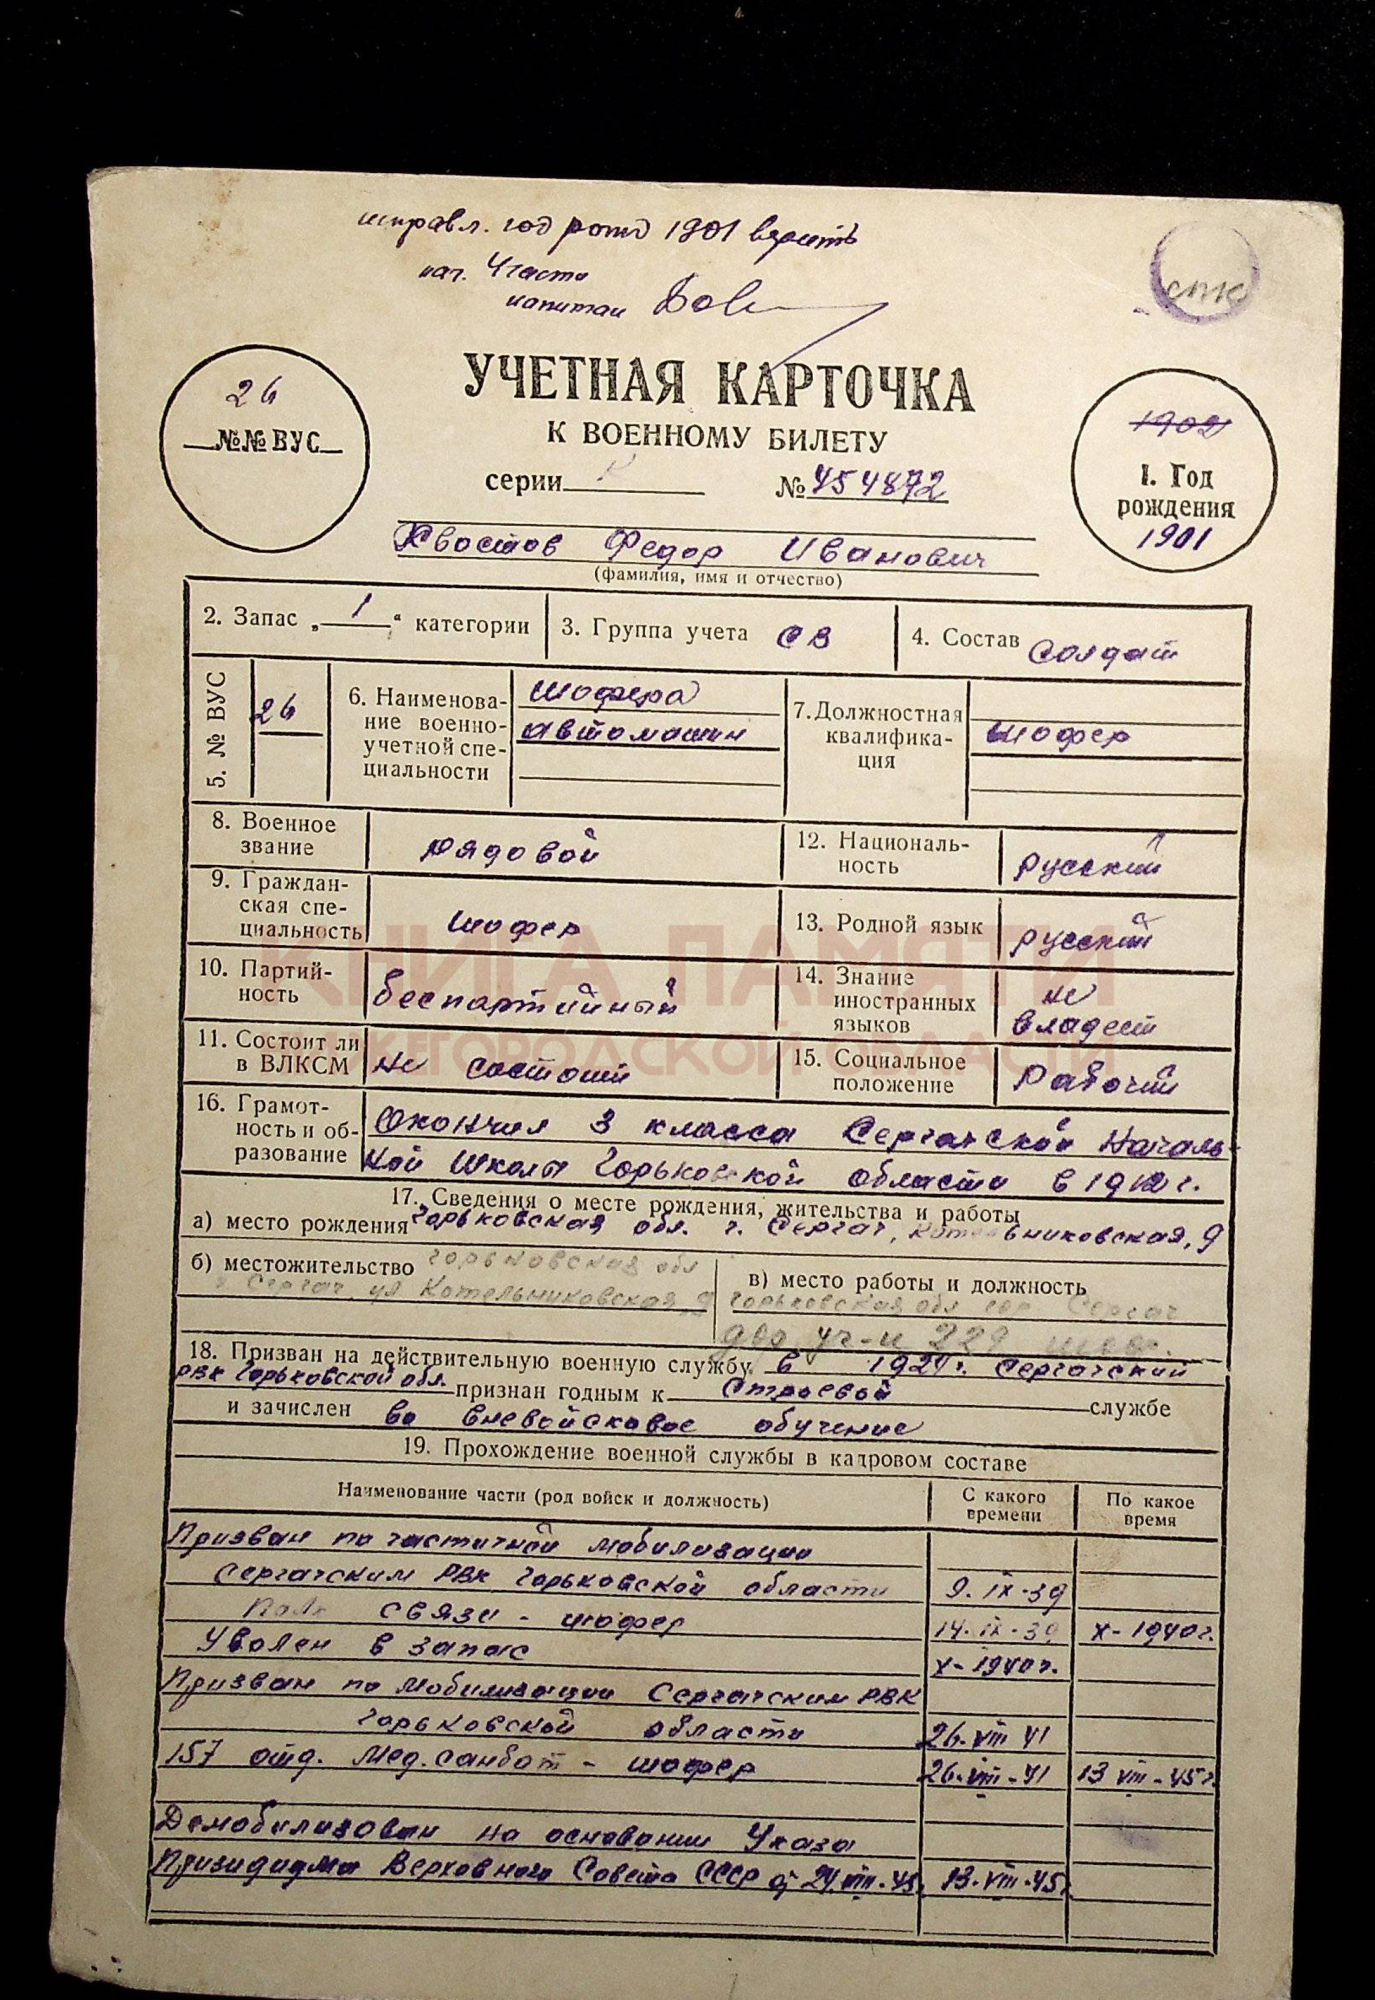 исправл. год рожд 1901 верить
нач. 4 части
капитан
УЧЕТНАЯ КАРТОЧКА
К ВОЕННОМУ БИЛЕТУ
серии № 454872
26
№№ ВУС
1902
1. Год
рождения
1901
Хвостов Федор Иванович
(фамилия, имя и отчество)
2. Запас „1“ категории
3. Группа учета СВ
4. Состав солдат
5. № ВУС 26
6. Наименова-
ние военно-
учетной спе-
циальности
шофера
автомашин
7. Должностная
квалифика-
ция
шофер
8. Военное
звание
рядовой
9. Граждан-
ская спе-
циальность
шофер
10. Партий-
ность
беспартийный
11. Состоит ли
в ВЛКСМ
не состоит
12. Националь-
ность
русский
13. Родной язык русский
14. Знание
иностранных
языков
не
владеет
15. Социальное
положение
Рабочий
16. Грамот-
ность и об-
разование
Окончил 3 класса Сергачской началь-
ной школы Горьковской области в 1912 г.
17. Сведения о месте рождения, жительства и работы
а) место рождения Горьковская обл. г. Сергач, Котельниковская, 9
б) местожительство Горьковская обл
г Сергач, ул Котельниковская 9
в) место работы и должность
Горьковская обл гор Сергач
уч-к 229
18. Призван на действительную военную службу в 192 г. Сергачский
РВК Горьковской обл. признан годным к строевой службе
и зачислен во вневойсковое обучение
19. Прохождение военной службы в кадровом составе
Наименование части (род войск и должность)
С какого
времени
По какое
время
Призван по частичной мобилизации
Сергачским РВК Горьковской области 9.IX-39
Полк связи - шофер 14.IX-39 X-1940г.
Уволен в запас X-1940г.
Призван по мобилизации Сергачским РВК
Горьковской области 26.VIII 41
157 отд. Мед.санбат - шофер 26.VIII-41 13 VIII-45г.
Демобилизован на основании Указа
Призидиума Верховного Совета СССР от VIII-45. 13.VIII-45г.
КНИГА ПАМЯТИ
НИЖГОРОДСКОЙ ОБЛАСТИ